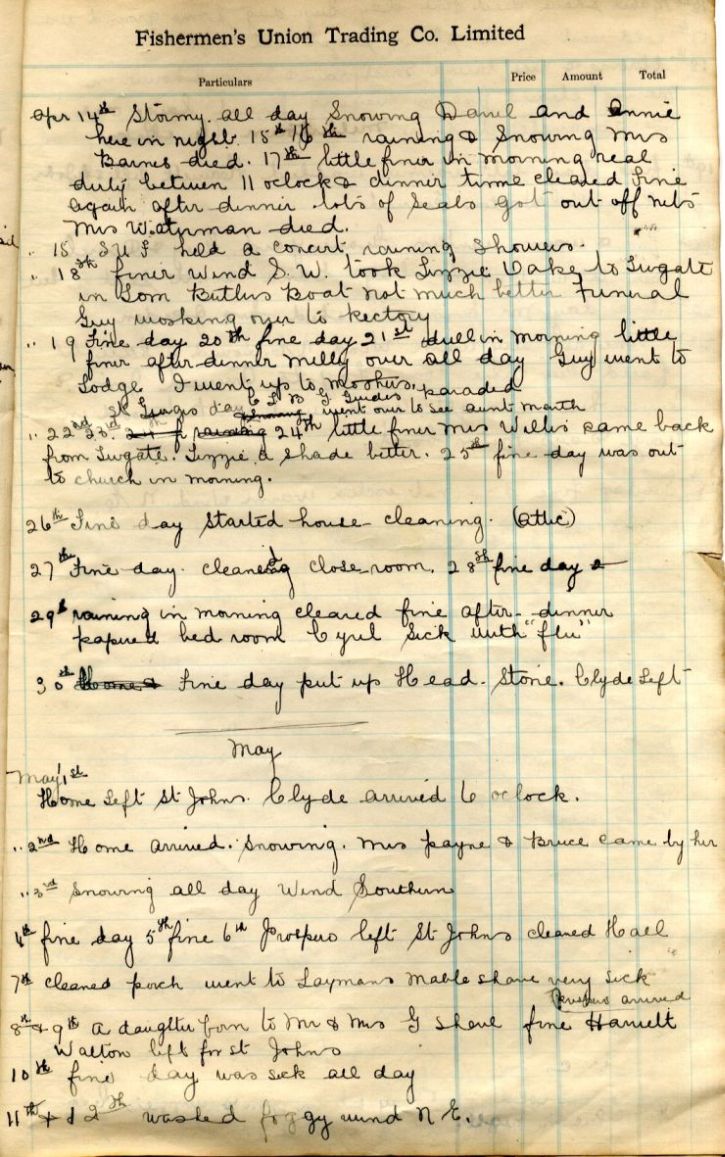 Fishermen's Union Trading Co. Limited
Particulars Price Amount Total
Apr 14th Stormy all day Snowing Dariel and Annie
here in night. 15th 16th raining & Snowing Mrs
Barnes died. 17th little finer in morning real
dirty between 11 oclock & dinner time cleared fine
again after dinner lots of Seals got out off
Mrs Waterman died.
" 15 S U F held a concert raining Showers.
" 18th finer wind S. W. took Lizzie Oake to Twgate
in Tom Butlers Boat not much better Funeral
Guy working over to Rectory
" 19 Fine day 20th fine day 21st dull in morning little
finer after dinner Milly over all day Guy went to
Lodge I went up to
St Georges day C L B G Guides paraded
went over to see aunt Marth
" 22nd 23rd 24th little finer Mrs Willis came back
from Twgate. Lizzie a shade better. 25th fine day was out
to church in morning.
26th Fine day Started house cleaning. (attic)
27th Fine day. cleaned close room. 28th fine day
29th raining in morning cleared fine after dinner
papered bed room Cyril Sick with "flu"
30th Fine day put up Head. Stone. Clyde Left
May
May 1st
Home Left St Johns. Clyde arrived 6 oclock.
" 2nd Home arrived. Snowing. Mrs Payne & Bruce came by her
" 3rd Snowing all day Wind Southern
4th fine day 5th fine 6th Prospero left St Johns cleaned Hall
7th cleaned porch went to Laymans Mable shave very sick
Prospero arrived
8th & 9th A daughter born to Mr & Mrs G Shave fine Harriett
Walton left for St Johns
10th fine day was sick all day
11th & 12th washed foggy wind N E.